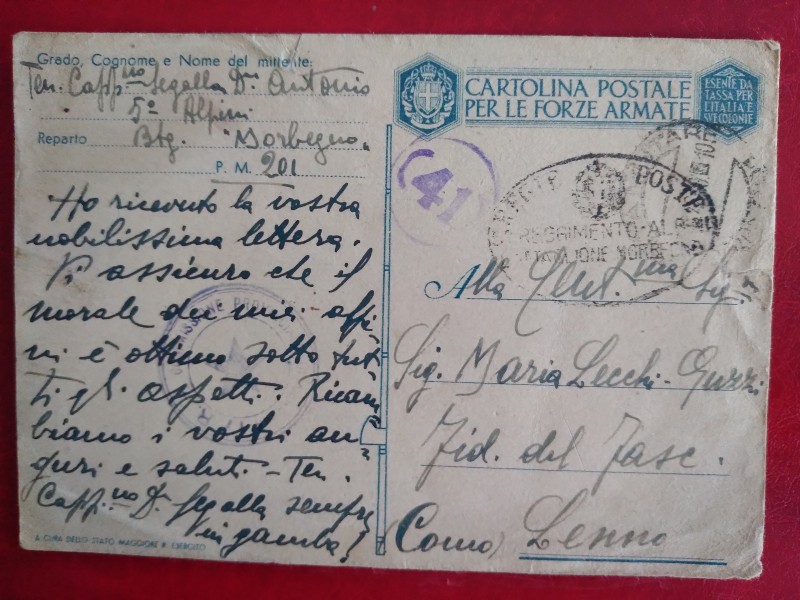 Grado, Cognome e Nome del mittente:
Ten. Capp.no Segalla Dn Antonio
5° Alpini
Reparto Btg. Morbegno
P. M. 201
Ho ricevuto la vostra
nobilissima lettera.
Vi assicuro che il
morale dei miei alpi
ni è ottimo sotto tut
ti gli aspetti. Ricam
biamo i vostri au
guri e saluti - Ten.
Capp.no D. Segalla sempre
in gamba!
A CURA DELLO STATO MAGGIORE R. ESERCITO
CARTOLINA POSTALE
PER LE FORZE ARMATE
ESENTE DA
TASSA PER
L'ITALIA E
SUE COLONIE
41
POSTE
REGGIMENTO AL
MORBE
Alla
Sig. Maria Lecchi-Guzzi
Fid. del Fasc.
(Como) Lenno